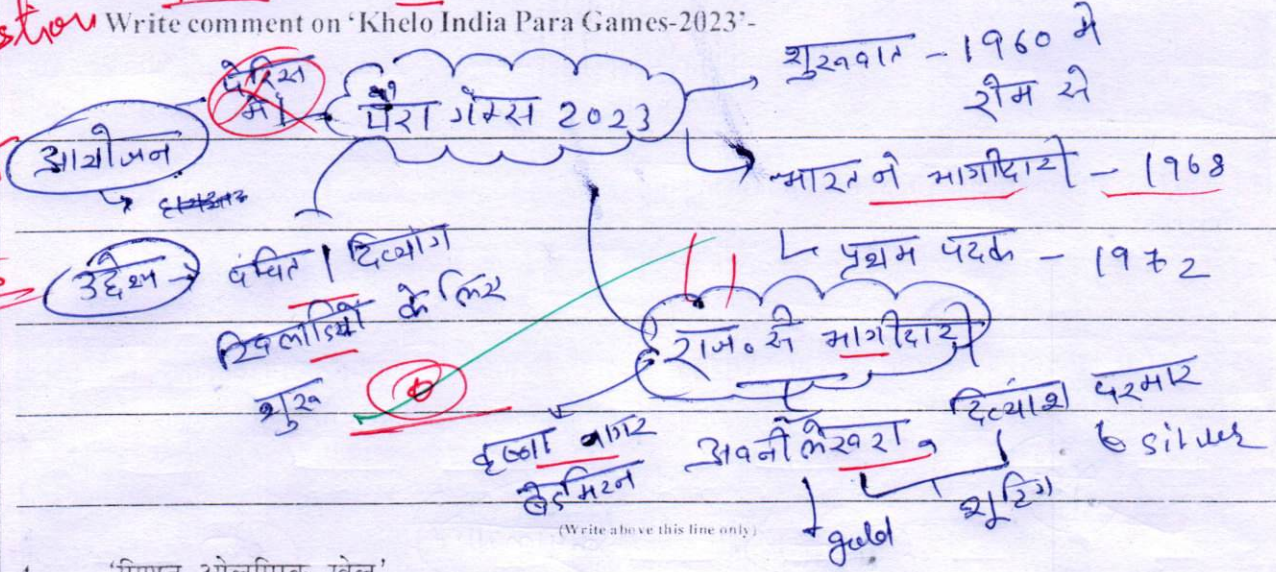 Write comment on ‘Khelo India Para Games-2023’-
पेरिस में
पैरा गेम्स 2023
शुरूवात - 1960 मे
रोम से
आयोजन
भारत ने भागीदारी - 1968
प्रथम पदक - 1972
उद्देश्य → वंचित / दिव्यांग
खिलाडियों के लिए
शुरू
राज. से भागीदारी
कृष्णा नागर
बेडमिंटन
अवनी लेखरा
gold
दिव्यांश परमार
silver
शूटिंग
(Write above this line only)